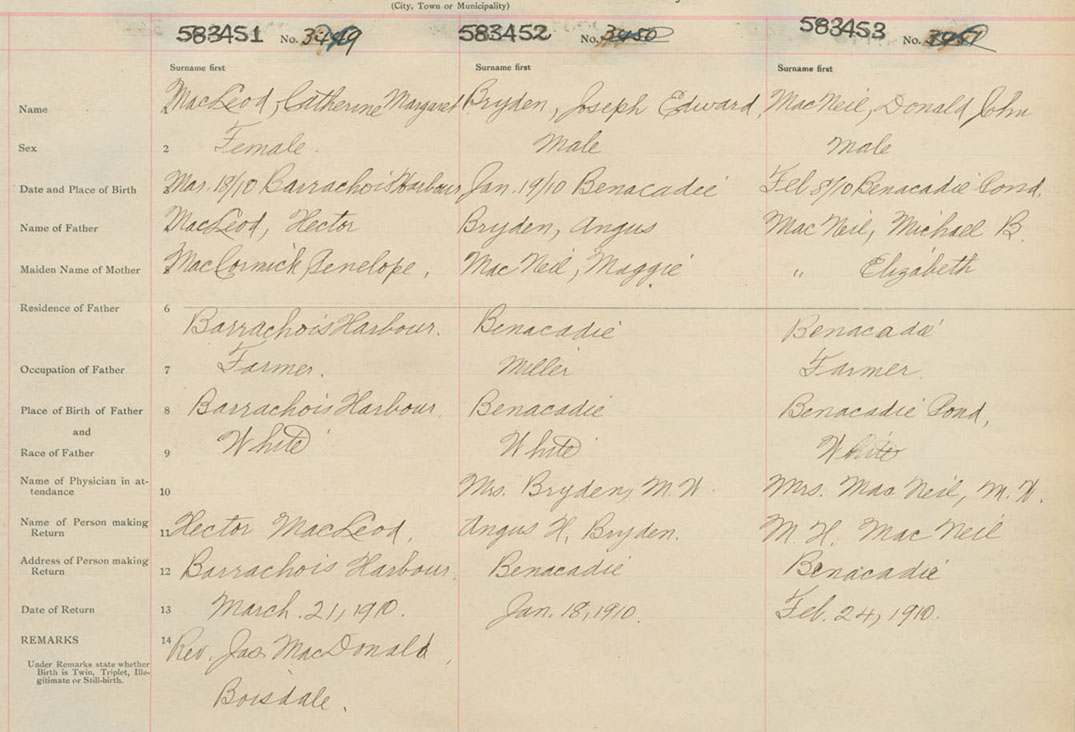 (City, Town or Municipality)
583451 No. 3449 583452 No. 3450 583453 No. 3451
Surname first Surname first Surname first
Name 1 MacLeod, Catherine Margaret Bryden, Joseph Edward, MacNeil, Donald John
Sex 2 Female. Male Male
Date and Place of Birth 3 Mar. 18/10 Barrachois Harbour Jan. 19/10 Benacadie Feb 8/10 Benacadie Pond.
Name of Father 4 MacLeod, Hector Bryden, Angus MacNeil, Michael B.
Maiden Name of Mother 5 MacCormick, Penelope, MacNeil, Maggie " Elizabeth
Residence of Father 6
Barrachois Harbour. Benacadie Benacadie
Occupation of Father 7 Farmer. Miller Farmer.
Place of Birth of Father 8 Barrachois Harbour. Benacadie Benacadie Pond,
and
Race of Father 9 White White White
Name of Physician in at-
tendance 10 Mrs. Bryden, M.W. Mrs. MacNeil, M.W.
Name of Person making
Return 11 Hector MacLeod, Angus H. Bryden. M. H. MacNeil
Address of Person making
Return 12 Barrachois Harbour. Benacadie Benacadie
Date of Return 13 March. 21, 1910. Jan. 18, 1910. Feb. 24, 1910.
REMARKS 14 Rev. Jas MacDonald,
Under Remarks state whether
Birth is Twin, Triplet, Ille-
gitimate or Still-birth.
Boisdale.